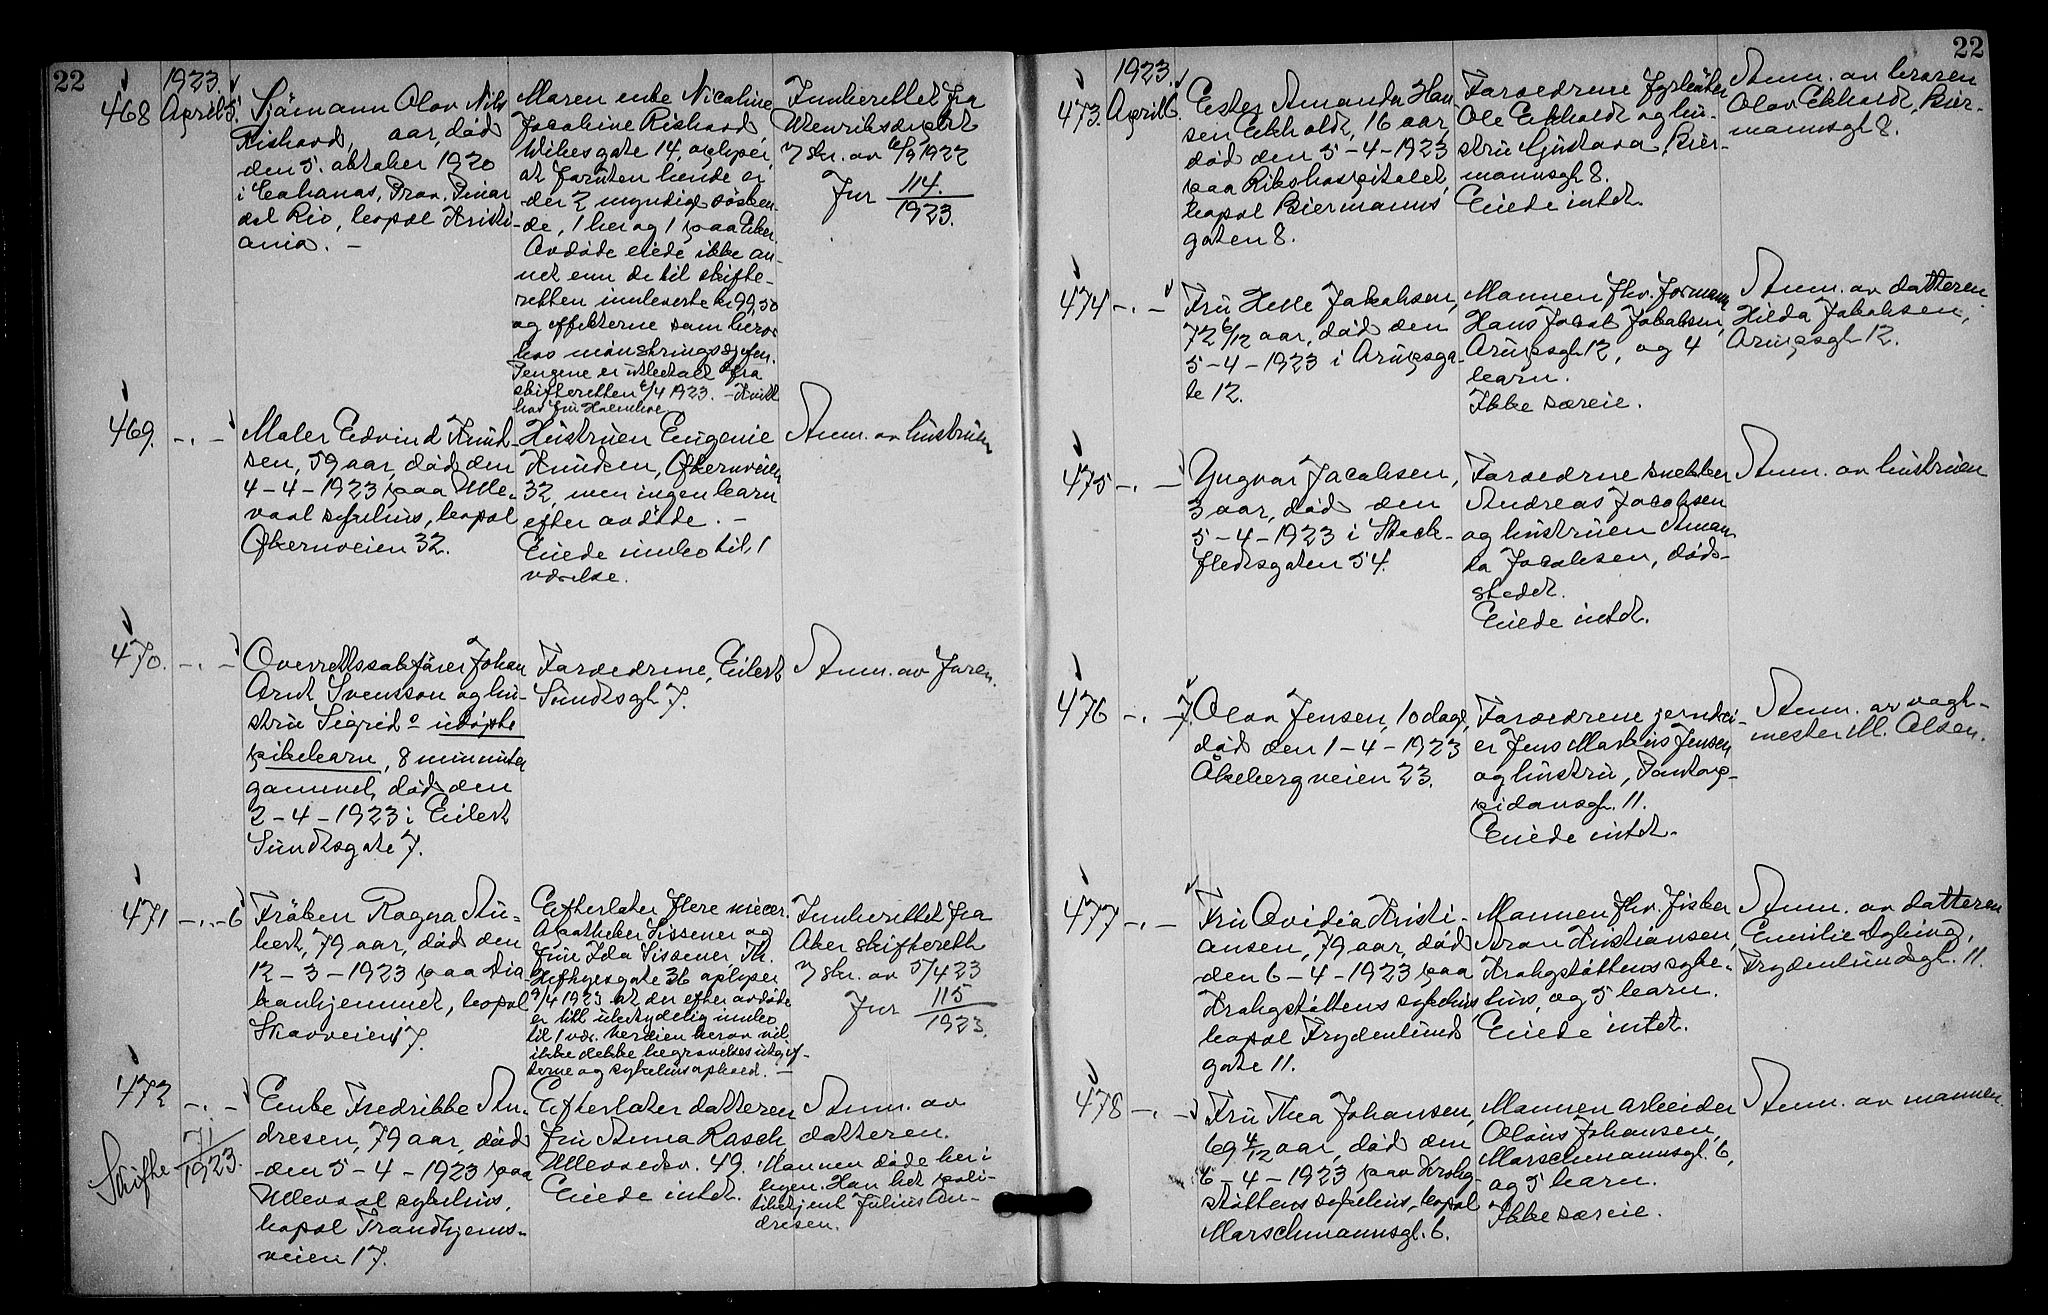 22
1923.
468
April 5.
Sjømann Olav Nils
Rishovd, aar, død
den 5. oktober 1920
i Cabanas, Prov. Pinar
del Rio, bopæl Kristi-
ania. —
Maren enke Nicoline
Jacobine Rishovd,
Wilsesgate 14, oplyser,
at foruten hende er
der 2 myndige søsken-
de, 1 her og 1 paa Eker.
Avdøde eiede ikke an-
net enn de til skifte-
retten innleverte kr 99,50
og effekterne som beror
hos mønstringssjefen.
Pengene er utbetalt fra
skifteretten 6/4 1923. – Kvitt
hos fru Holmboe
Innberettet fra
Utenriksdepart
v/ skr. av 6/9 1922
Jnr 114.
1923.
469.
–.–
Maler Edvind Knud-
sen, 59 aar, død den
4–4–1923 paa Ulle-
vaal sykehus, bopæl
Økernveien 32.
Hustruen Eugenie
Knudsen, Økernveien
32, men ingen barn
efter avdøde. –
Eiede innbo til 1
værelse.
Anm. av hustruen
470.
–.–
Overrettssakfører Johan
Arnt Svensson og hu-
stru Sigrids udøpte
pikebarn, 8 minuter
gammel, død den
2–4–1923 i Eilert
Sundtsgate 7.
Forældrene, Eilert
Sundtsgt 7.
Anm. av faren.
471
–.–6
Frøken Ragna Au-
bert, 79 aar, død den
12–3–1923 paa Dia
konhjemmet, bopæl
Skovveien 7.
Efterlater flere niecer.
Apotheker Sissener og
fru Ida Sissener, Th.
Heftyesgate 36 oplyser
9/4 1923 at der efter avdøde
er litt ubetydelig innbo
til 1 vær. Verdien herav vil
ikke dekke begravelsesutgif-
terne og sykehusophold. —
Innberettet fra
Aker skifterett
v/ skr. av 5/4 23
Jnr 115
1923.
472
–.–
Skifte 71
1923.
Enke Fredrikke An-
dresen, 79 aar, død
den 5–4–1923 paa
Ullevaal sykehus,
bopæl Trondhjems-
veien 17.
Efterlater datteren
fru Anna Rasch,
Ullevoldsv. 49.
Eiede intet.
Anm. av
datteren.
Mannen døde her i
byen. Han het poli-
tibetjent Julius An-
dresen.
22
1923.
473.
April 6.
Ester Amanda Han
sen Ekholdt, 16 aar,
død den 5–4–1923
paa Rikshospitalet,
bopæl Biermanns
gaten 8.
Forældrene fyrbøter
Ole Ekholdt og hu-
stru Gustava, Bier-
mannsgt 8.
Eiede intet.
Anm. av broren
Olav Ekholdt, Bier-
mannsgt 8.
474
–.–
Fru Helle Jakobsen,
72 6/12 aar, død den
5–4–1923 i Arupsga-
te 12.
Mannen fhv. formann
Hans Jacob Jakobsen,
Arupsgt 12, og 4
barn.
Ikke særeie.
Anm. av datteren
Hilda Jakobsen,
Arupsgt 12.
475
–.–
Yngvar Jacobsen,
3 aar, død den
5–4–1923 i Stock-
fledsgaten 54.
Forældrene snekker
Andreas Jacobsen
og hustruen Aman
da Jacobsen, døds-
stedet.
Eiede intet.
Anm. av hustruen
476
–.–7
Olav Jensen, 10 dage,
død den 1–4–1923
Åkebergveien 23.
Forældrene jerndrei-
er Jens Markus Jensen
og hustru, Fontop-
pidansgt. 11.
Eiede intet.
Anm. av vagt-
mester M. Olsen.
477
–.–
Fru Ovidia Kristi-
ansen, 79 aar, død
den 6–4–1923 paa
Krohgstøttens sykehus,
bopæl Frydenlunds
gate 11.
Mannen fhv. fisker
Aron Kristiansen,
Krohgstøttens syke-
hus, og 5 barn.
Eiede intet.
Anm. av datteren
Emilie Dybing,
Frydenlundsgt. 11.
478
–.–
Fru Thea Johansen,
69 4/12 aar, død den
6–4–1923 paa Krohg-
støttens sykehus, bopæl
Marschmannsgt. 6.
Mannen arbeider
Olaus Johansen,
Marschmannsgt. 6,
og 5 barn.
Ikke særeie.
Anm. av mannen